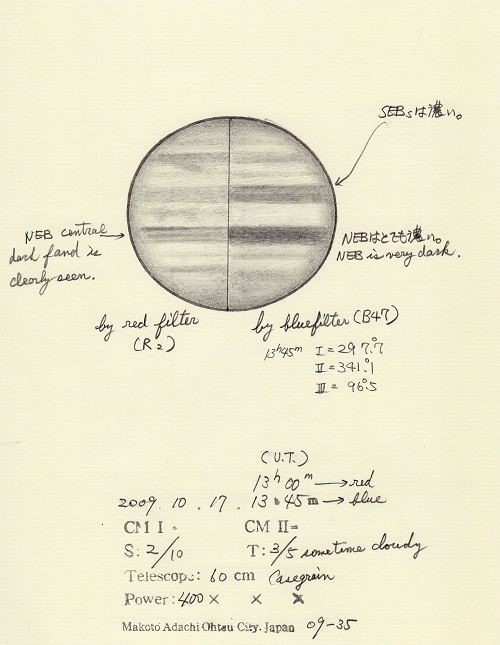 SEBsは濃い。
NEB central
dark fand is
clearly seen.
NEBはとても濃い。
NEB is very dark.
by red filter
(R2)
by bluefilter (B47)
13h45m I = 297.°7
II = 341.°1
III = 96.°5
(U.T.)
13h 00m → red
2009. 10. 17. 13h 45m → blue
CM I = CM II=
S: 2/10 T: 3/5 sometime cloudy
Telescope: 60 cm Casegrain
Power: 400× × ×
Makoto Adachi Ohtsu City. Japan 09-35